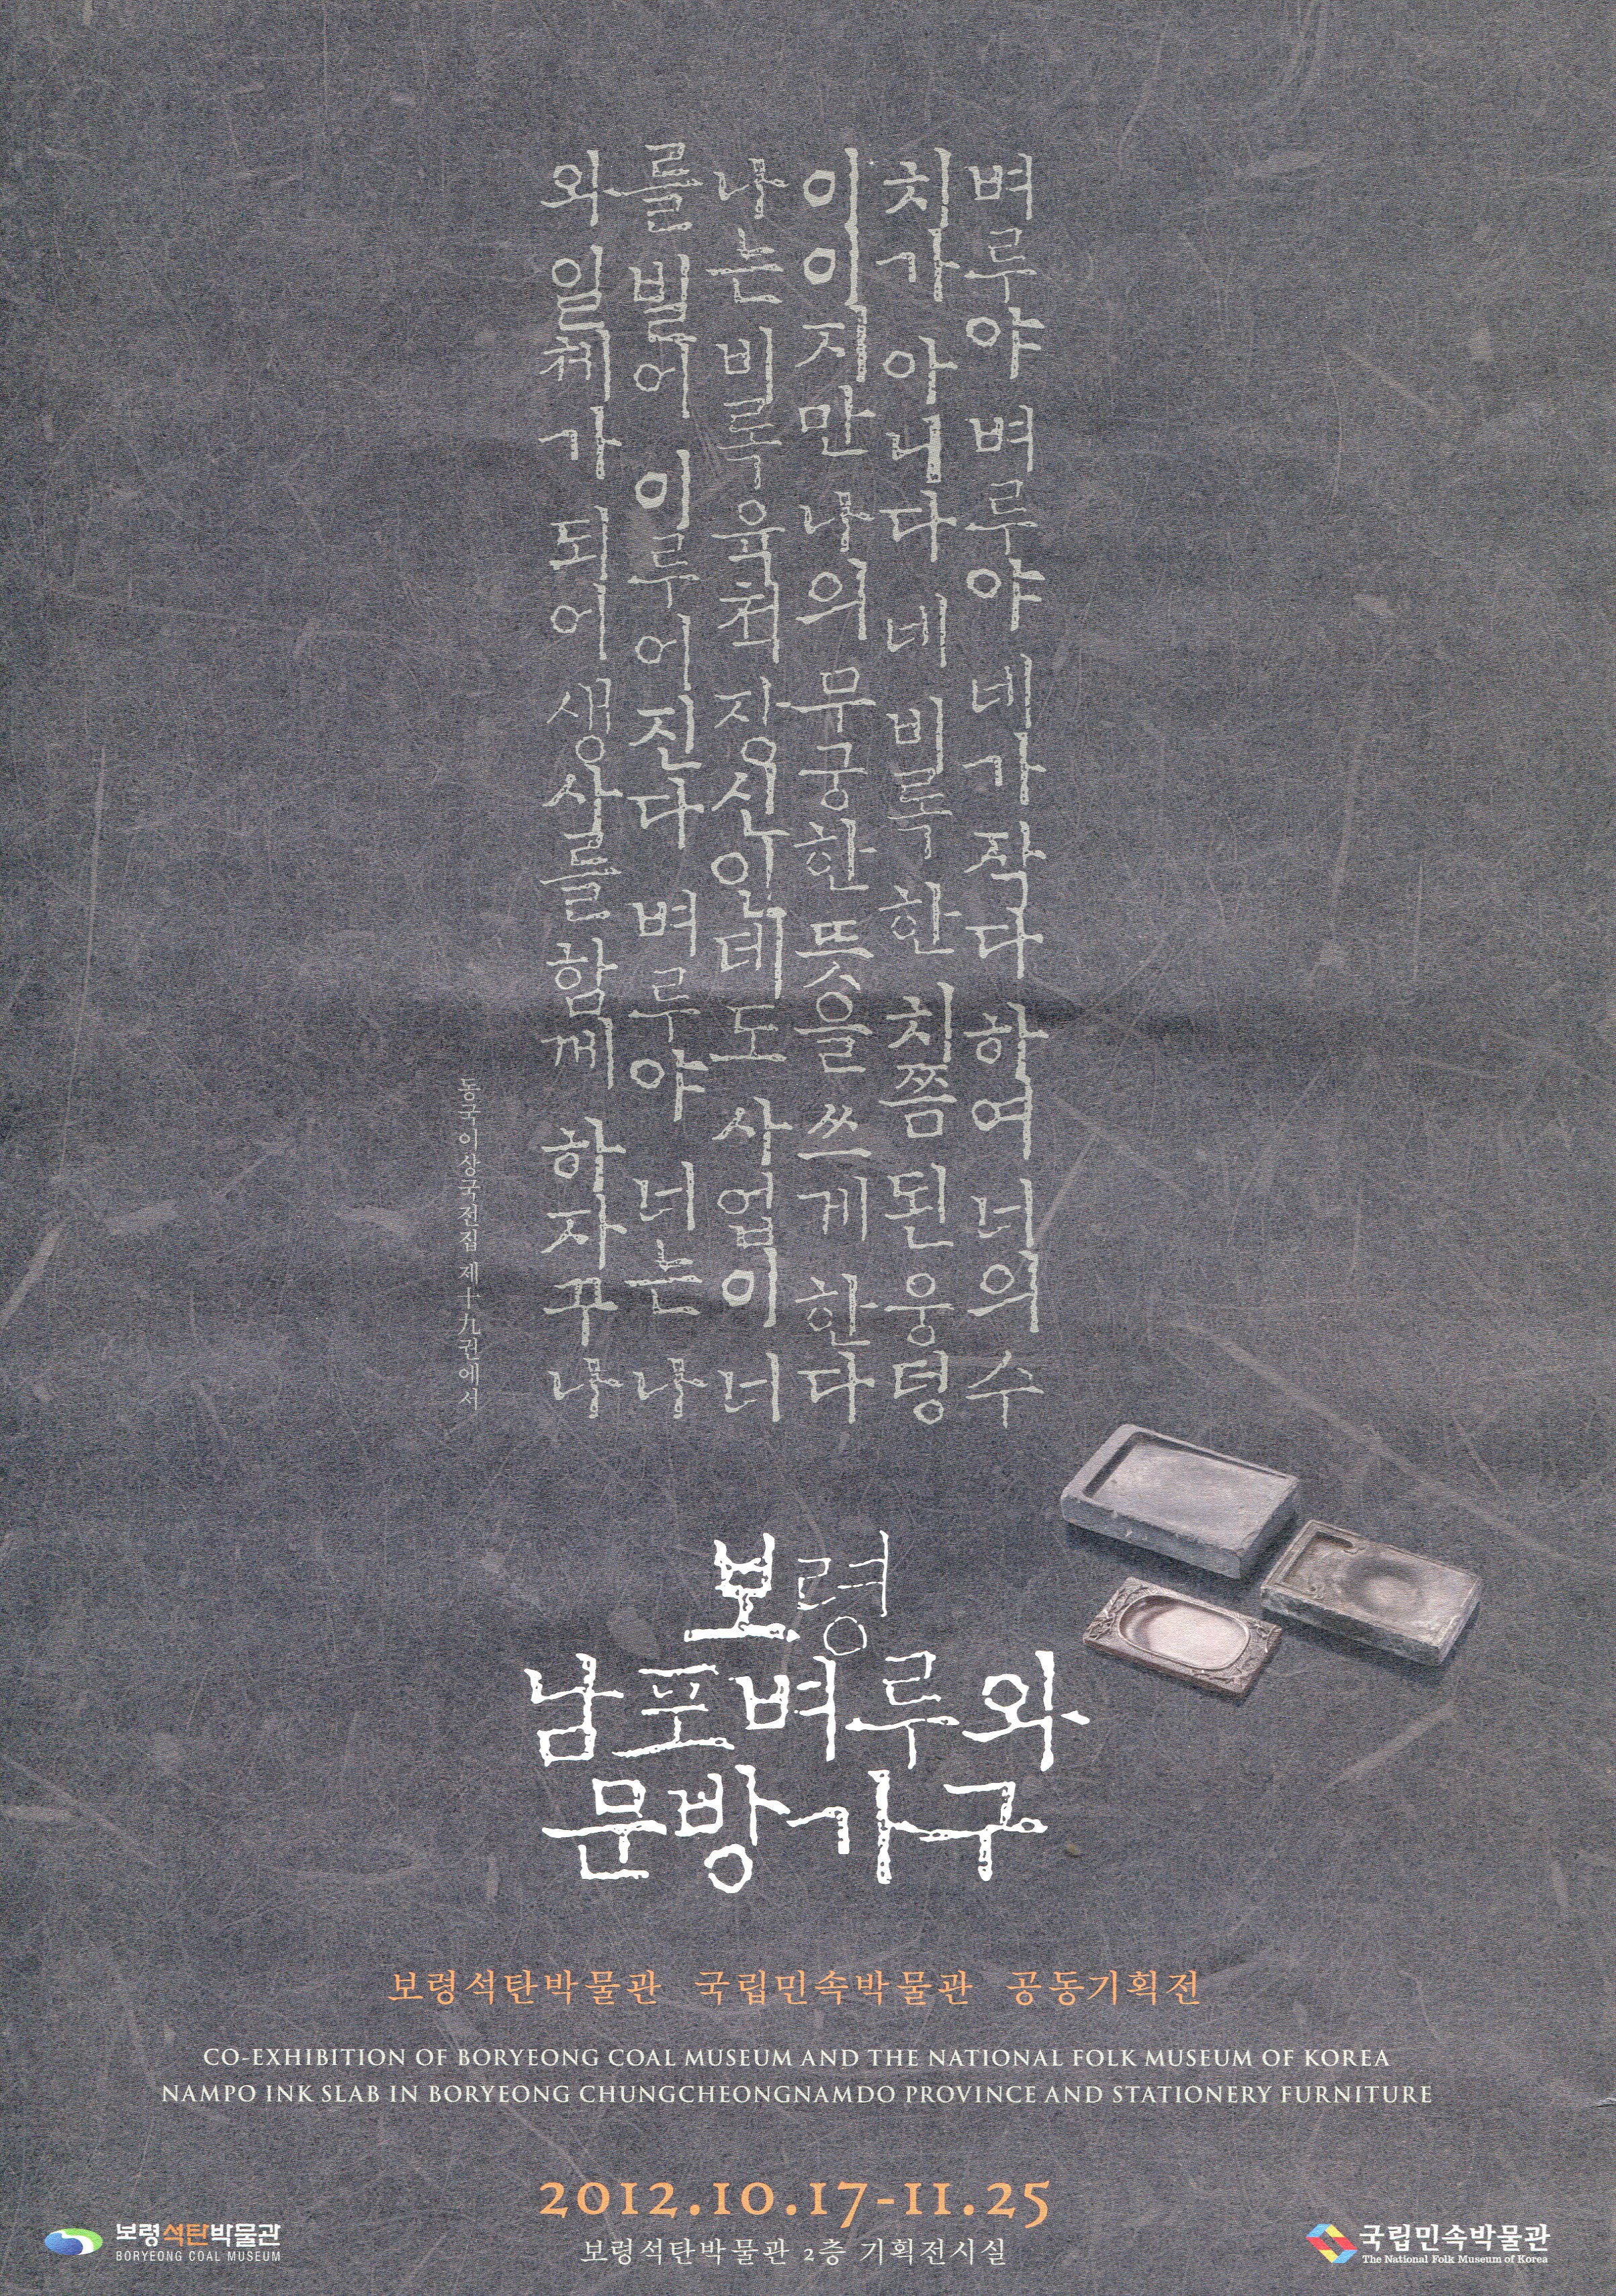 벼루야 벼루야 네가 작다 하여 너의 수
치가 아니다 네 비록 한 치쯤 된 웅덩
이이지만 나의 무궁한 뜻을 쓰게 한다
나는 비록 육척 장신인데도 사업이 너
를 빌어 이루어진다 벼루야 너는 나
와 일체가 되어 생사를 함께 하자꾸나
동국이상국전집 제十九권에서
보령
남포벼루와
문방가구
보령석탄박물관 국립민속박물관 공동기획전
CO-EXHIBITION OF BORYEONG COAL MUSEUM AND THE NATIONAL FOLK MUSEUM OF KOREA
NAMPO INK SLAB IN BORYEONG CHUNGCHEONGNAMDO PROVINCE AND STATIONERY FURNITURE
2012.10.17-11.25
보령석탄박물관 2층 기획전시실
보령석탄박물관
BORYEONG COAL MUSEUM
국립민속박물관
The National Folk Museum of Korea